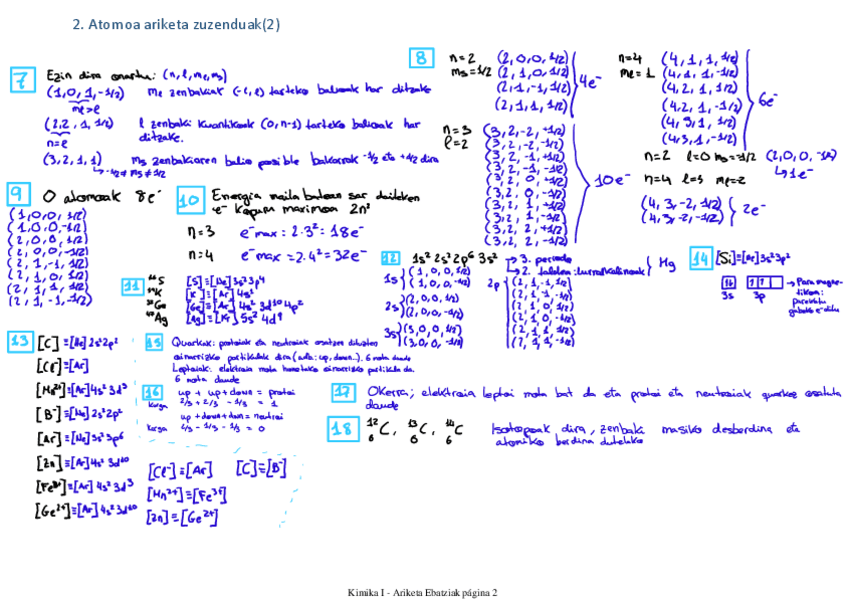 2. Atomoa ariketa zuzenduak(2)
7
Ezin dira onartu: (n, l, me, ms)
(1,0,1,-1/2) me zenbakiak (-l, l) tarteko balioak har ditzake
me>l
(2,2,1,1/2) l zenbaki kuantikoak (0, n-1) tarteko balioak har ditzake.
n=l
(3,2,1,1) ms zenbakiaren balio posible bakarrak -1/2 eta +1/2 dira
↳ -1/2 ≠ ms ≠ 1/2
8
n=2
ms=1/2
(2,0,0,1/2)
(2,1,0,1/2)
(2,1,-1,1/2)
(2,1,1,1/2)
4e⁻
n=3
l=2
(3,2,-2,+1/2)
(3,2,-2,-1/2)
(3,2,-1,+1/2)
(3,2,-1,-1/2)
(3,2,0,+1/2)
(3,2,0,-1/2)
(3,2,1,+1/2)
(3,2,1,-1/2)
(3,2,2,+1/2)
(3,2,2,-1/2)
10e⁻
n=4
me=1
(4,1,1,1/2)
(4,1,1,-1/2)
(4,2,1,1/2)
(4,2,1,-1/2)
(4,3,1,1/2)
(4,3,1,-1/2)
6e⁻
n=2 l=0 ms=-1/2 (2,0,0,-1/2)
↳1e⁻
n=4 l=3 me=-2
(4,3,-2,1/2)
(4,3,-2,-1/2)
2e⁻
9
O atomoak 8e⁻
(1,0,0,1/2)
(1,0,0,-1/2)
(2,0,0,1/2)
(2,0,0,-1/2)
(2,1,-1,1/2)
(2,1,0,1/2)
(2,1,1,1/2)
(2,1,-1,-1/2)
10
Energia maila batean sar daitekeen
e⁻ kopuru maximoa 2n²
n=3 e⁻max = 2·3² = 18e⁻
n=4 e⁻max = 2·4² = 32e⁻
11
S [S]=[Ne] 3s²3p⁴
K [K]=[Ar] 4s¹
Ge [Ge]=[Ar] 4s²3d¹⁰4p²
Ag [Ag]=[Kr] 5s²4d⁹
12
1s² 2s² 2p⁶ 3s²
→ 3. periodo
→ 2. taldea: lurralkalinoak
Mg
1s (1,0,0,1/2)
(1,0,0,-1/2)
2s (2,0,0,1/2)
(2,0,0,-1/2)
3s (3,0,0,1/2)
(3,0,0,-1/2)
2p (2,1,-1,1/2)
(2,1,-1,-1/2)
(2,1,0,1/2)
(2,1,0,-1/2)
(2,1,1,1/2)
(2,1,1,-1/2)
14
3s 3p
13
[C]=[He] 2s²2p²
[Cl⁻]=[Ar]
[Mn²⁺]=[Ar] 4s²3d³
[B⁻]=[He] 2s²2p²
[Ar]=[Ne] 3s²3p⁶
[Zn]=[Ar] 4s²3d¹⁰
[Fe³⁺]=[Ar] 4s²3d³
[Ge²⁺]=[Ar] 4s²3d¹⁰
[Cl⁻]=[Ar] [C]=[B⁻]
[Mn²⁺]=[Fe³⁺]
[Zn]=[Ge²⁺]
15
Quarkak: protoiak eta neutroiak osatzen dituzten
oinarrizko partikulak dira (adb: up, down..). 6 mota daude
Leptoiak: elektroia mota honetako oinarrizko partikula da.
6 mota daude
16
up + up + down = protoi
karga 2/3 + 2/3 - 1/3 = 1
up + down + down = neutroi
karga 2/3 - 1/3 - 1/3 = 0
17
Okerra; elektroia leptoi mota bat da eta protoi eta neutroiak quarkez osatuta
daude
18
¹²₆C, ¹³₆C, ¹⁴₆C
Isotopoak dira, zenbaki masiko desberdina eta
atomiko berdina dutelako
Kimika I - Ariketa Ebatziak página 2